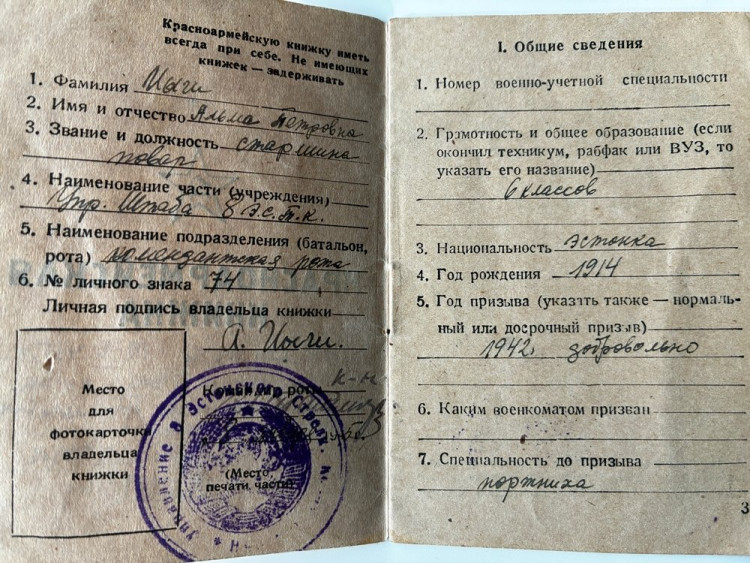 Красноармейскую книжку иметь
всегда при себе. Не имеющих
книжек — задерживать
1. Фамилия Иыги
2. Имя и отчество Альма Петровна
3. Звание и должность старшина
повар
4. Наименование части (учреждения)
Упр. Штаба 8 Эс.т.к.
5. Наименование подразделения (батальон,
рота) комендантская рота
6. № личного знака 74
Личная подпись владельца книжки
А. Иыги.
Место
для
фотокарточки
владельца
книжки
Командир роты к-н
(Место
печати части)
Управление 8 Эстонского Стрелк.
I. Общие сведения
1. Номер военно-учетной специальности
2. Грамотность и общее образование (если
окончил техникум, рабфак или ВУЗ, то
указать его название)
6 классов
3. Национальность эстонка
4. Год рождения 1914
5. Год призыва (указать также — нормаль-
ный или досрочный призыв)
1942. добровольно
6. Каким военкоматом призван
7. Специальность до призыва
портниха
3